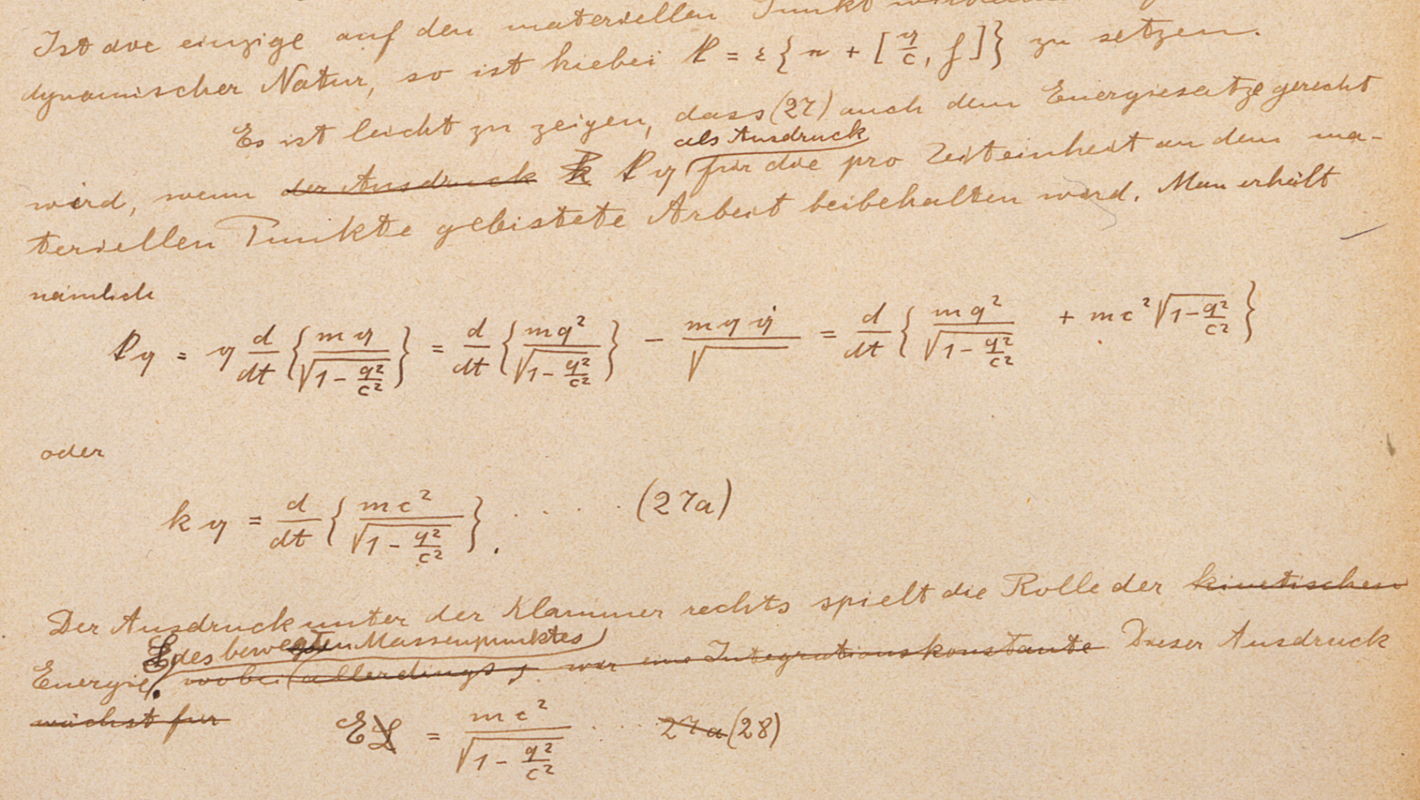 Ist die einzige auf den materiellen Punkt
dynamischer Natur, so ist hiebei k = ε { n + [ q/c , f ] } zu setzen.
Es ist leicht zu zeigen, dass (27) auch dem Energiesatze gerecht
als Ausdruck
wird, wenn der Ausdruck k k q für die pro Zeiteinheit an dem ma-
teriellen Punkte geleistete Arbeit beibehalten wird. Man erhält
nämlich
k q = q d/dt { m q / √(1 - q²/c²) } = d/dt { m q² / √(1 - q²/c²) } - m q q̇ / √ = d/dt { m q² / √(1 - q²/c²) + m c² √(1 - q²/c²) }
oder
k q = d/dt { m c² / √(1 - q²/c²) } . . . . . (27a)
Der Ausdruck unter der Klammer rechts spielt die Rolle der kinetischen
des bewegten Massenpunktes
Energie, wobei (allerdings, war eine Integrationskonstante Dieser Ausdruck
wächst für
E L = m c² / √(1 - q²/c²) . . . 27a (28)